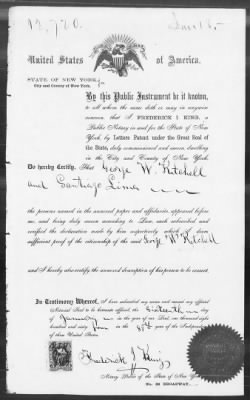 12,720.
United States of America.
STATE OF NEW YORK,
City and County of New York,
By this Public Instrument be it known,
to all whom the same doth or may in anywise
concern, that I FREDERICK I. KING, a
Public Notary in and for the State of New
York, by Letters Patent under the Great Seal of
the State, duly commissioned and sworn, dwelling
in the City and County of New York.
Do hereby Certify, That George W. Kitchell
and Santiago
the persons named in the annexed papers and affidavits, appeared before
me, and being duly sworn according to Law, each subscribed and
verified the declaration made by him respectively which is
sufficient proof of the citizenship of the said George W. Kitchell
and I hereby also certify the annexed description of his person to be correct.
In Testimony Whereof, I have subscribed my name and caused my official
Notarial Seal to be hereunto affixed the Sixteenth
day of January in the year of our Lord one thousand eight
hundred and sixty four in the 88th year of the Independence
of these United States.
Frederick I. King
Notary Public of the State of New York
BROADWAY.